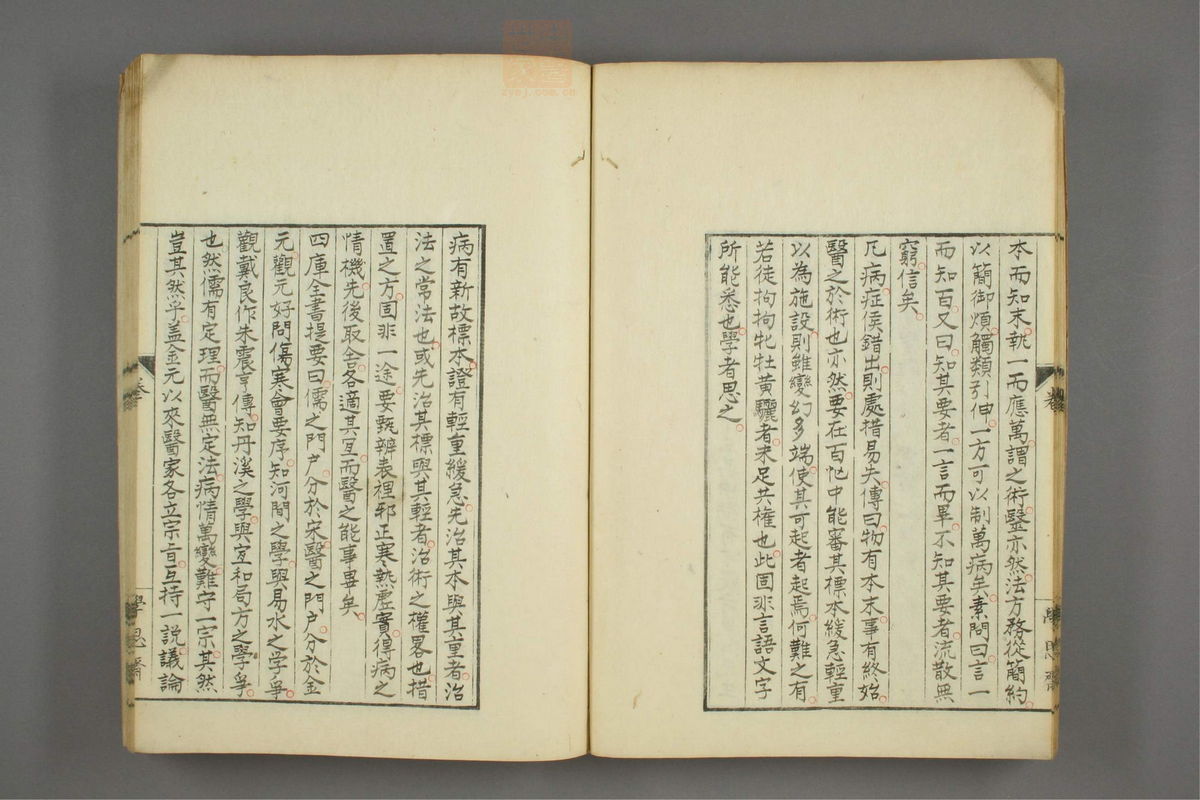 本而知末執一而應萬謂之術醫亦然法方務從簡約
以簡御煩觸類引伸一方可以制萬病矣素問曰言一
而知百又曰知其要者一言而畢不知其要者流散無
窮信矣
凡病症候錯出則處措易失傳曰物有本末事有終始
醫之於術也亦然要在百忙中能審其標本緩急輕重
以為施設則雖變幻多端使其可起者起焉何難之有
若徒拘拘牝牡黄驪者未足共権也此固非言語文字
所能悉也學者思之
病有新故標本證有輕重緩急先治其本與其重者治
法之常法也或先治其標與其輕者治術之權畧也措
置之方固非一途要甄辨表裡邪正寒熱虛實得病之
情機先後取舍各適其宜而醫之能事畢矣
四庫全書提要曰儒之門戶分於宋醫之門戶分於金
元觀元好問傷寒會要序知河間之學與易水之学爭
觀戴良作朱震亨傳知丹溪之學與宣和局方之學爭
也然儒有定理而醫無定法病情萬變難守一宗其然
豈其然乎盖金元以來醫家各立宗旨互持一說議論
卷
學思齋
zyej.com.cn